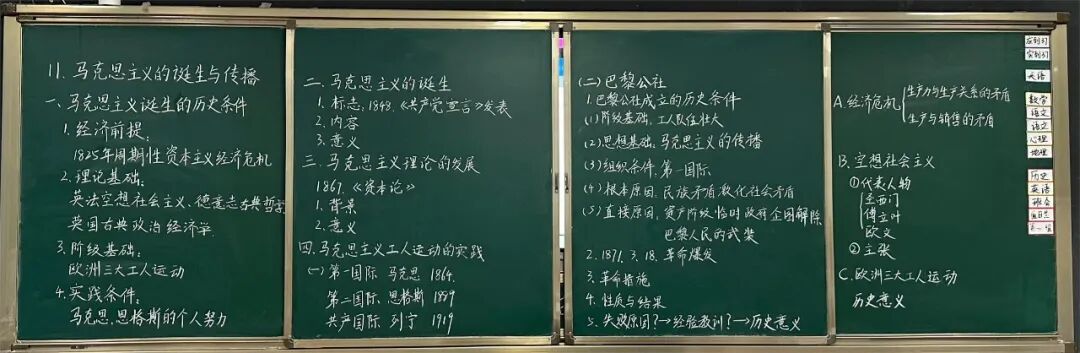 11. 马克思主义的诞生与传播
一、马克思主义诞生的历史条件
1. 经济前提:
1825年周期性资本主义经济危机
2. 理论基础:
英法空想社会主义、德意志古典哲学
英国古典政治经济学
3. 阶级基础:
欧洲三大工人运动
4. 实践条件:
马克思、恩格斯的个人努力
二、马克思主义的诞生
1. 标志:1848.《共产党宣言》发表
2. 内容
3. 意义
三、马克思主义理论的发展
1867.《资本论》
1. 背景
2. 意义
四、马克思主义工人运动的实践
(一) 第一国际 马克思 1864.
第二国际 恩格斯 1889
共产国际 列宁 1919
(二) 巴黎公社
1. 巴黎公社成立的历史条件
(1) 阶级基础:工人队伍壮大
(2) 思想基础:马克思主义的传播
(3) 组织条件:第一国际
(4) 根本原因:民族矛盾激化社会矛盾
(5) 直接原因:资产阶级临时政府企图解除
巴黎人民的武装
2. 1871. 3. 18. 革命爆发
3. 革命措施
4. 性质与结果
5. 失败原因?→经验教训?→历史意义
A. 经济危机
生产力与生产关系的矛盾
生产与销售的矛盾
B. 空想社会主义
①代表人物
圣西门
傅立叶
欧文
②主张
C. 欧洲三大工人运动
历史意义
应到31
实到31
英语
数学
语文
语文
心理
地理
历史
英语
班会